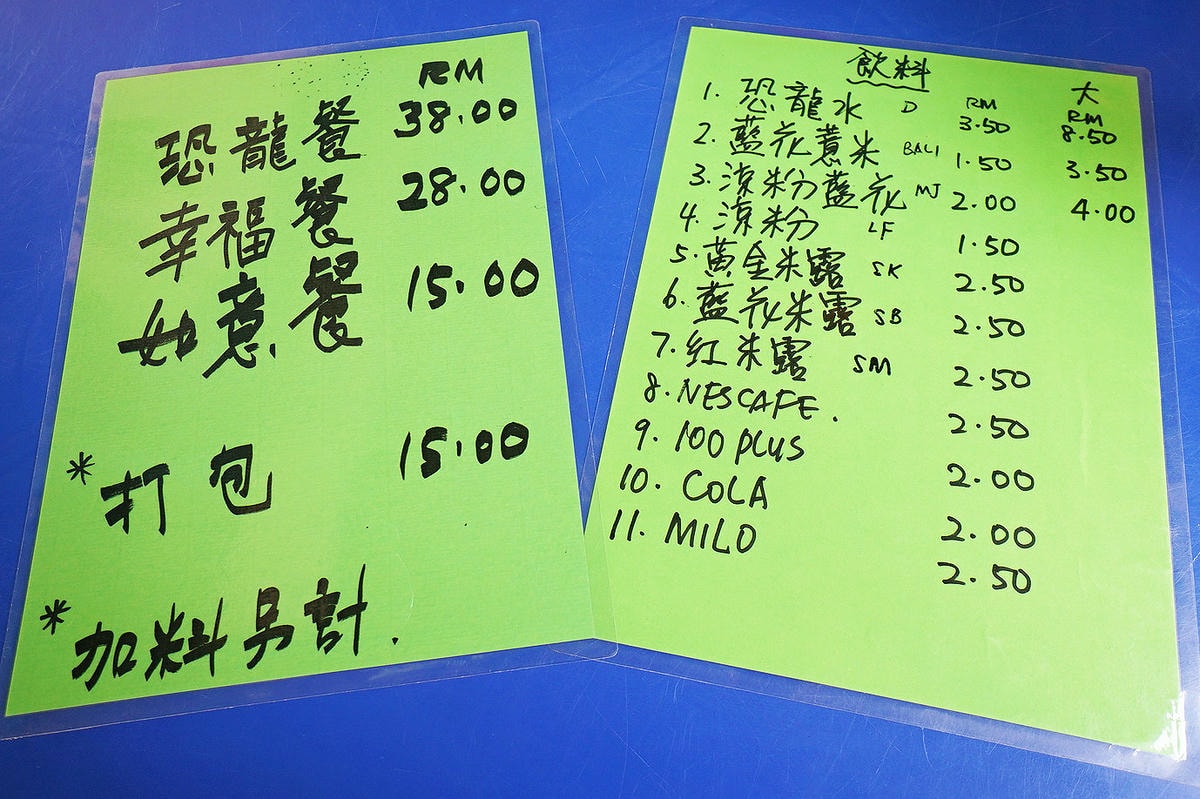 RM
恐龍餐 38.00
幸福餐 28.00
如意餐 15.00
* 打包 15.00
* 加料另計.
飲料
大
RM RM
1. 恐龍水 D 3.50 8.50
2. 藍花薏米 BALI 1.50 3.50
3. 涼粉藍花 MJ 2.00 4.00
4. 涼粉 LF 1.50
5. 黃金米露 SK 2.50
6. 藍花米露 SB 2.50
7. 紅米露 SM 2.50
8. NESCAFE. 2.50
9. 100 PLUS 2.00
10. COLA 2.00
11. MILO 2.50